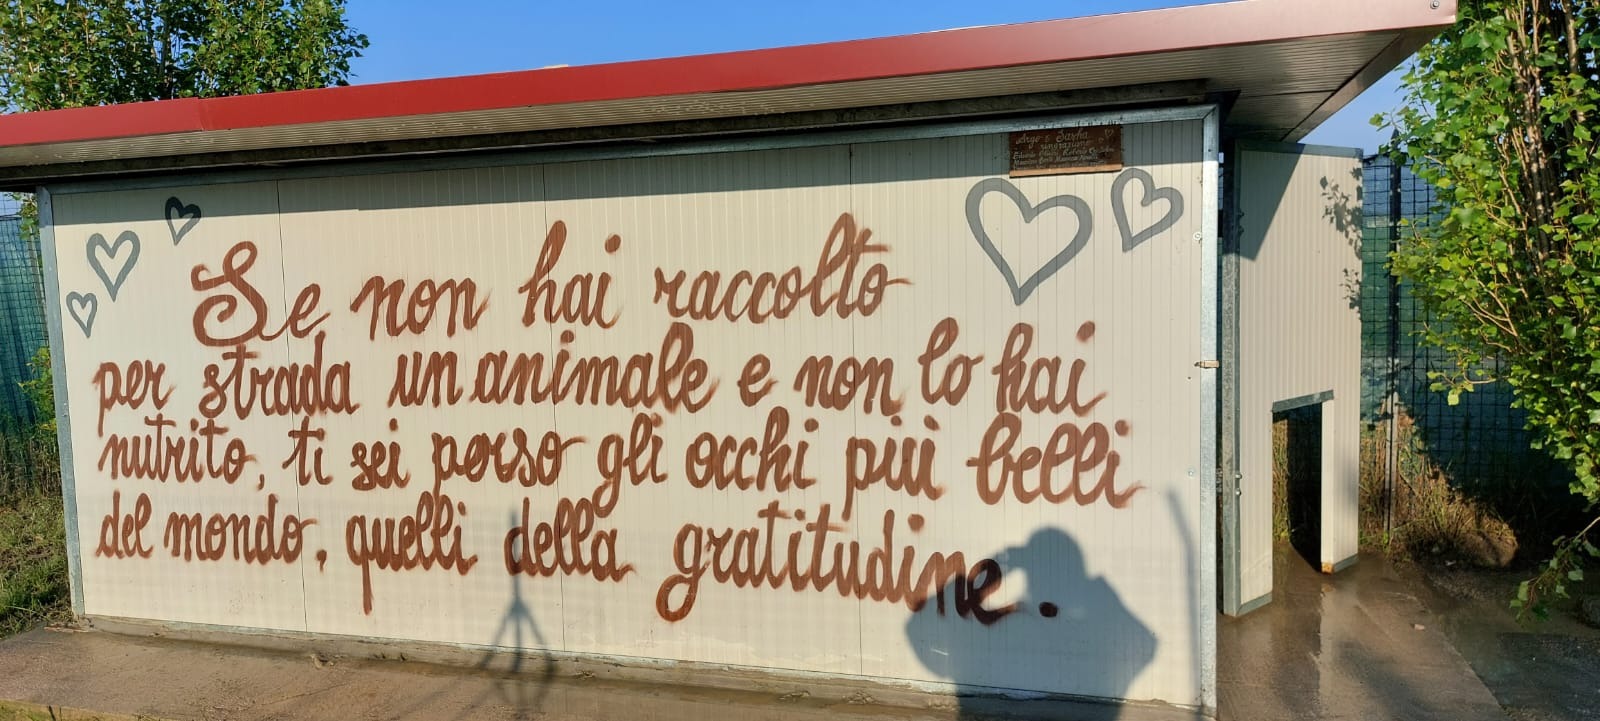 Argo e Sasha
ringraziano
Se non hai raccolto
per strada un animale e non lo hai
nutrito, ti sei perso gli occhi più belli
del mondo, quelli della gratitudine.